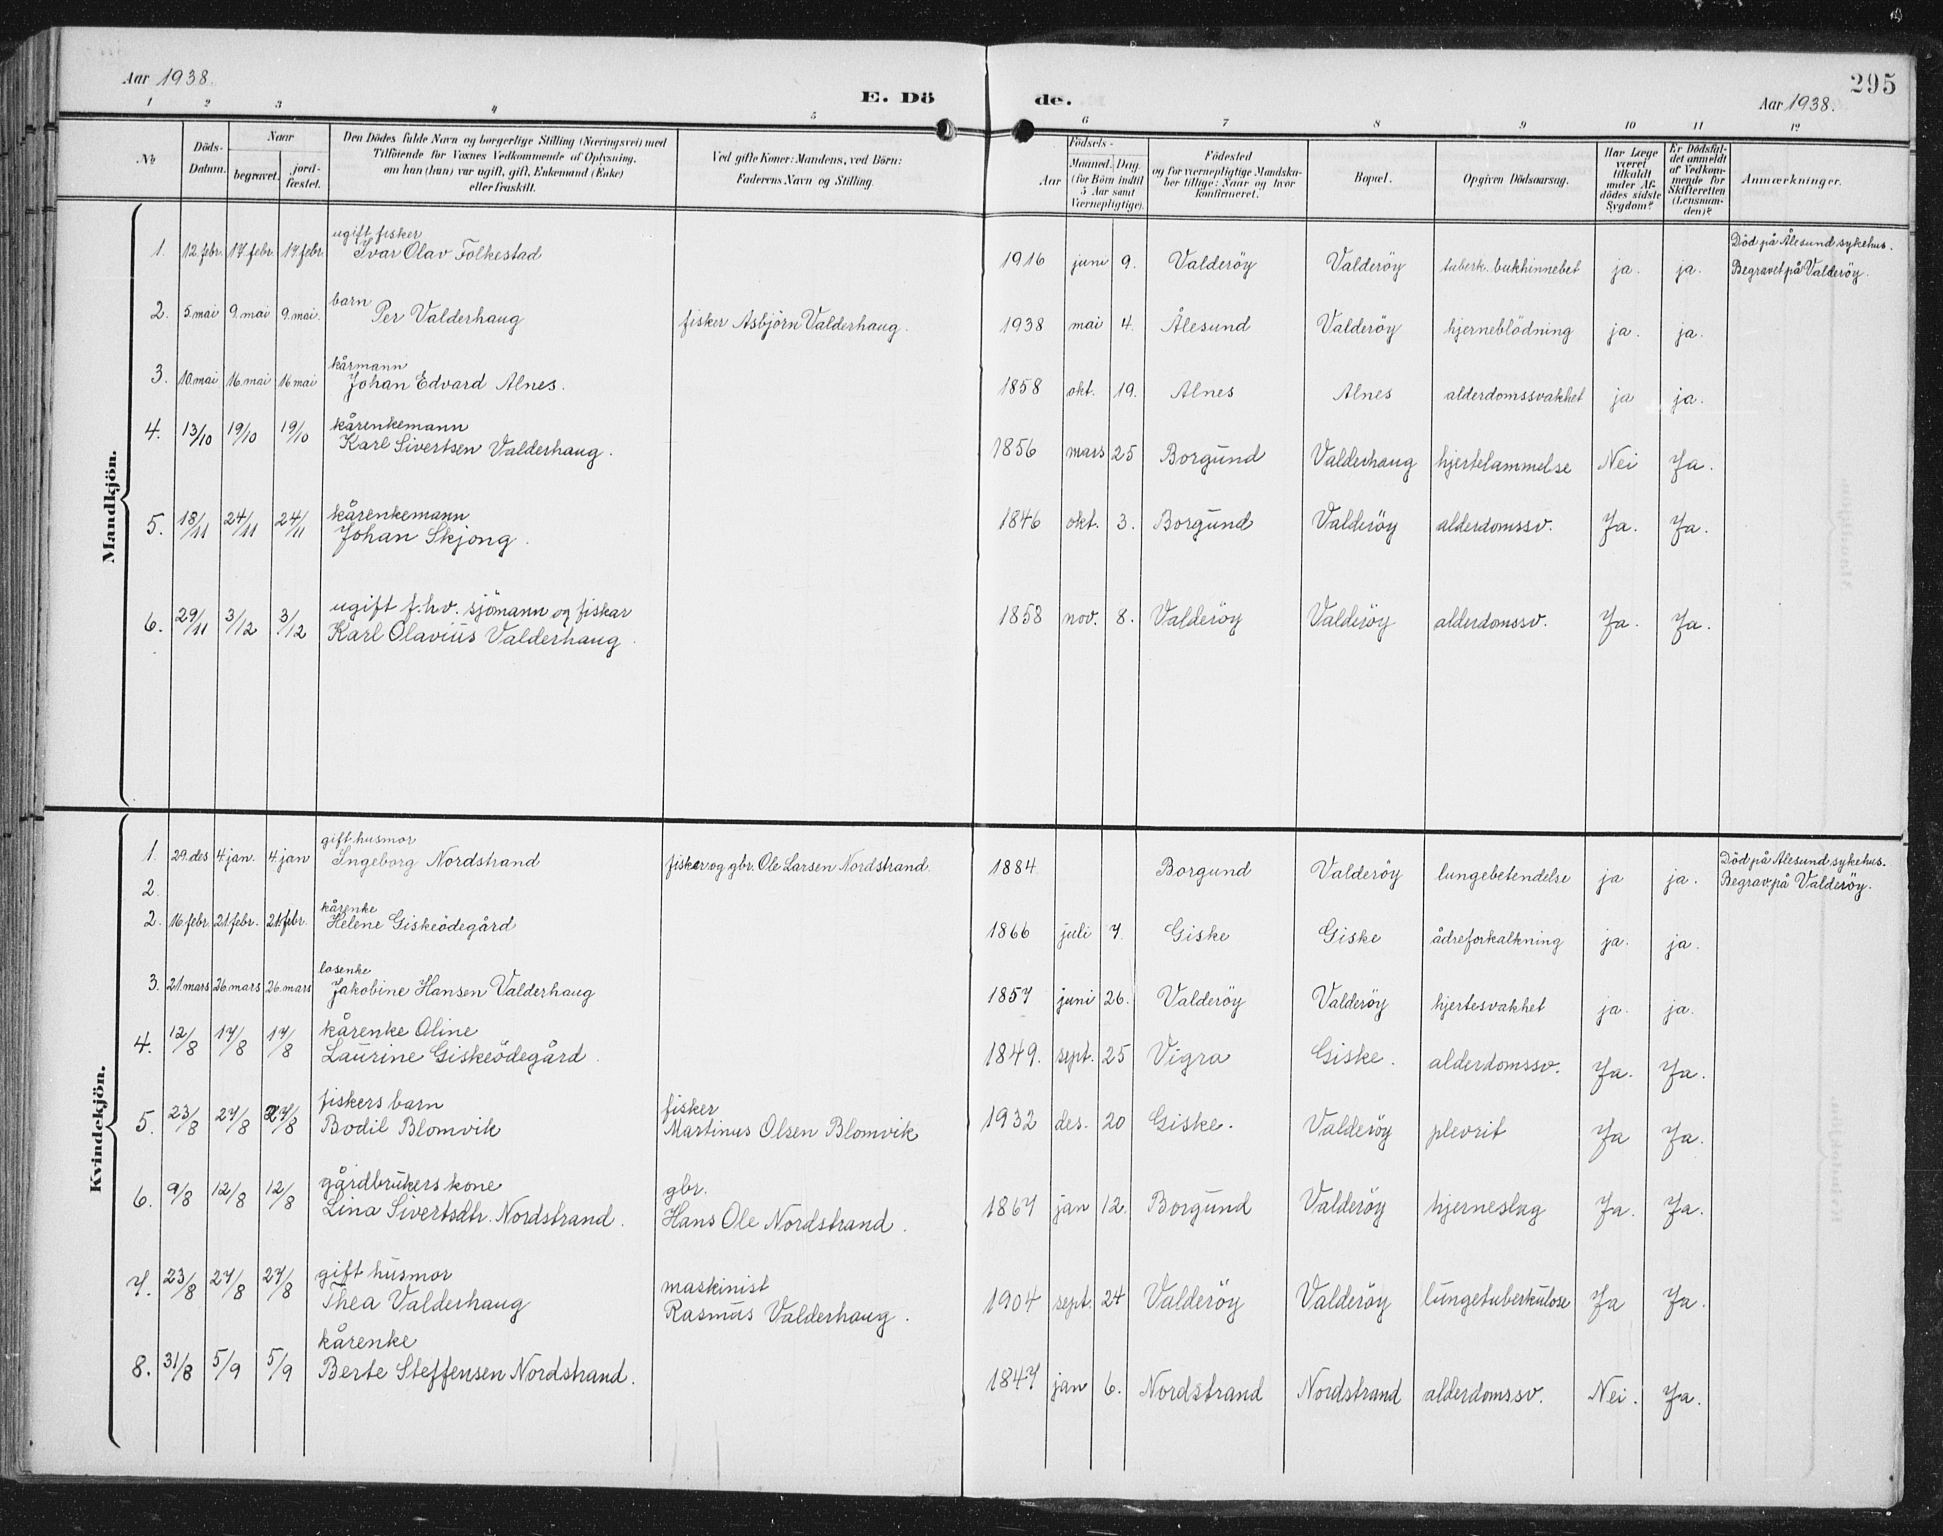 Aar 1938.
E. Dö
de.
295
Aar 1938.
1 2 3 4 5 6 7 8 9 10 11 12
No
Döds-Datum.
Naar
begravet.
jordfæstet.
Den Dödes fulde Navn og borgerlige Stilling (Næringsvei) med
Tilföiende for Voxnes Vedkommende af Oplysning,
om han (hun) var ugift, gift, Enkemand (Enke)
eller fraskilt.
Ved gifte Koner: Mandens, ved Börn:
Faderens Navn og Stilling.
Födsels-
Aar
Maaned. Dag.
(for Börn indtil
5 Aar samt
Værnepligtige).
Födested
og for værnepligtige Mandskaber tillige: Naar og hvor
konfirmeret.
Bopæl.
Opgiven Dödsaarsag.
Har Læge
været
tilkaldt
under Afdödes sidste
Sygdom?
Er Dödsfaldet anmeldt
af Vedkommende for
Skifteretten
(Lensmanden)?
Anmærkninger.
Mandkjön.
1. 12. febr. 17. febr. 17. febr. ugift fisker
Ivar Olav Folkestad 1916 juni 9. Valderöy Valderöy tuberk. bukhinnebet ja. ja. Död på Ålesund sykehus.
Begravet på Valderöy.
2. 5. mai 9. mai 9. mai. barn
Per Valderhaug fisker Asbjörn Valderhaug. 1938 mai 4. Ålesund Valderöy hjerneblödning ja. ja.
3. 10. mai 16. mai 16 mai kårmann
Johan Edvard Alnes. 1858 okt. 19. Alnes Alnes alderdomssvakhet ja ja.
4. 13/10 19/10 19/10 kårenkemann
Karl Sivertsen Valderhaug. 1856 mars 25 Borgund Valderhaug hjertelammelse Nei Ja.
5. 18/11 24/11 24/11 kårenkemann
Johan Skjong. 1846 okt. 3. Borgund Valderöy alderdomssv. Ja. Ja.
6. 29/11 3/12 3/12 ugift f.hv. sjömann og fiskar
Karl Olavius Valderhaug. 1858 nov. 8. Valderöy Valderöy alderdomssv. Ja. Ja.
Kvindekjön.
1. 29. des 4. jan. 4. jan gift husmor
Ingeborg Nordstrand fisker og gbr. Ole Larsen Nordstrand. 1884 Borgund Valderöy lungebetendelse ja ja. Död på Ålesund sykehus.
Begrav. på Valderöy.
2.
2. 16. febr 21. febr. 21. febr. kårenke
Helene Giskeödegård 1866 juli 7. Giske Giske ådreforkalkning ja. ja.
3. 21. mars 26. mars 26. mars losenke
Jakobine Hansen Valderhaug 1857 juni 26. Valderöy Valderöy hjertesvakhet ja. ja.
4. 12/8 17/8 17/8 kårenke Oline
Laurine Giskeödegård. 1849. sept. 25 Vigra Giske. alderdomssv. Ja. Ja.
5. 23/8 27/8 27/8 fiskers barn
Bodil Blomvik fisker
Martinus Olsen Blomvik 1932 des. 20 Giske. Valderöy plevrit Ja Ja.
6. 9/8 12/8 12/8 gårdbrukers kone
Lina Sivertsdtr. Nordstrand. gbr.
Hans Ole Nordstrand. 1867 jan 12. Borgund Valderöy hjerneslag Ja. Ja.
7. 23/8 27/8 27/8 gift husmor
Thea Valderhaug maskinist
Rasmus Valderhaug. 1904 sept. 24 Valderöy Valderöy lungetuberkulose Ja Ja.
8. 31/8 5/9 5/9 kårenke
Berte Steffensen Nordstrand. 1847 jan 6. Nordstrand Nordstrand alderdomssv. Nei. Ja.